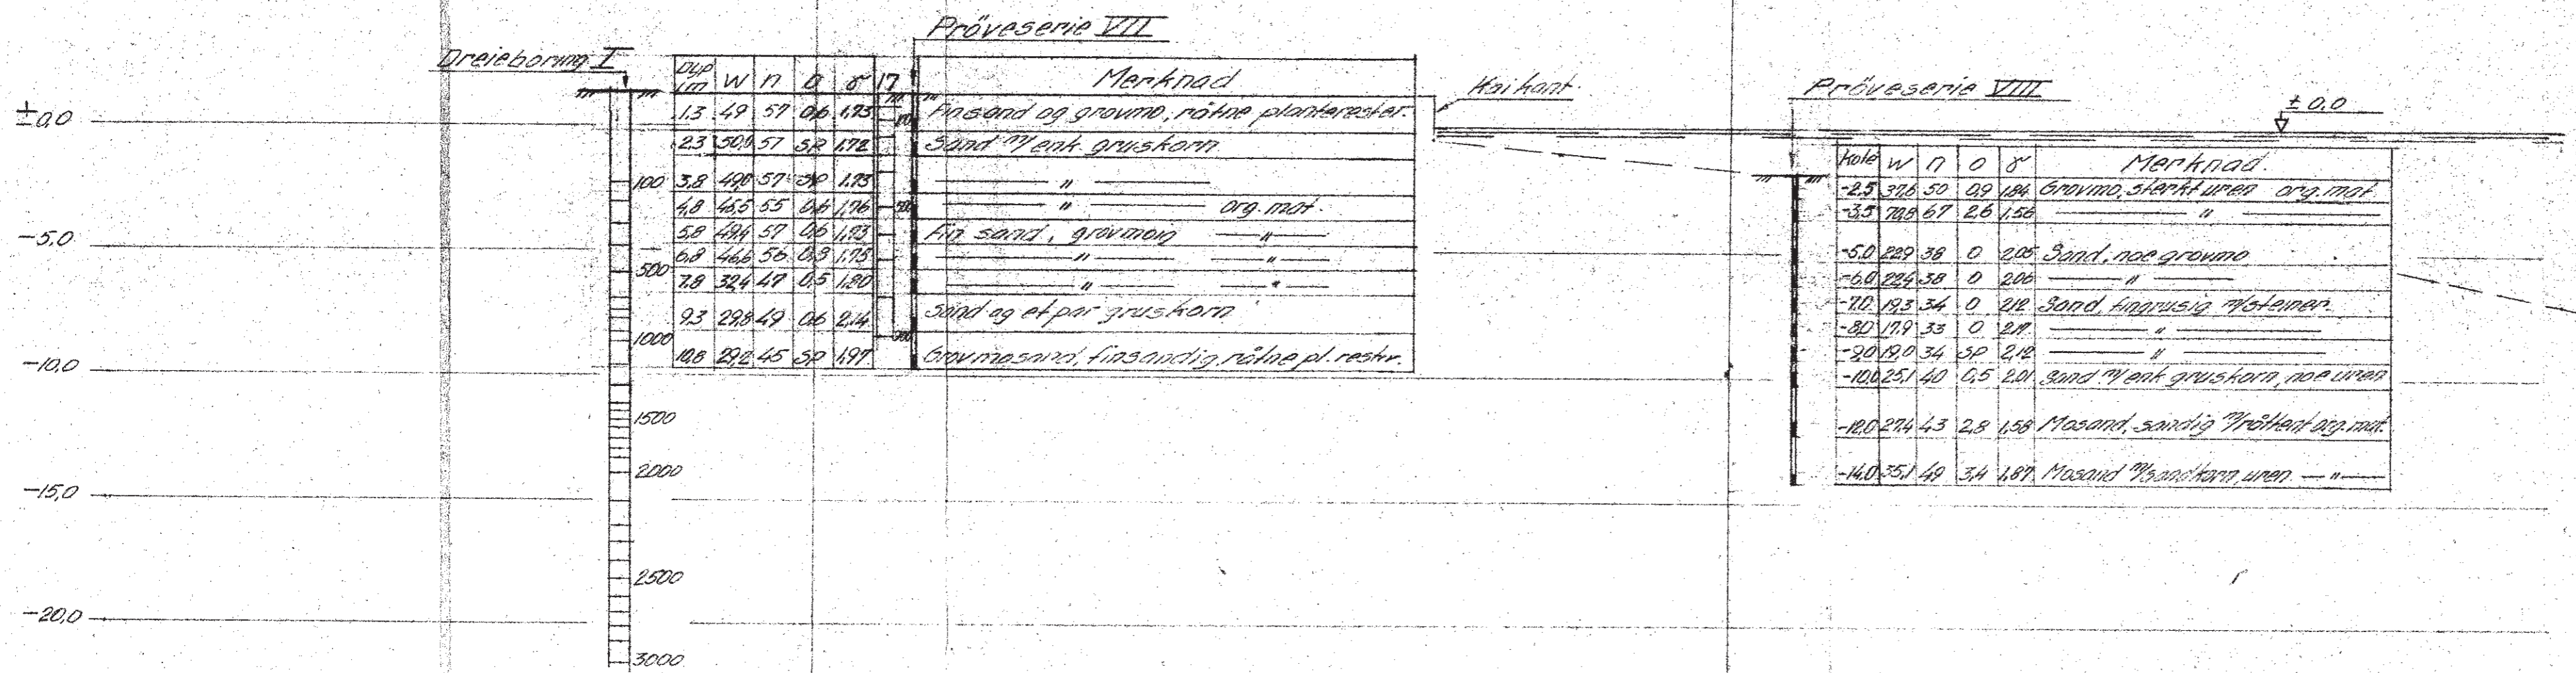 Prøveserie VII
Dreieboring I
Dyp i m W n O γ 17 Merknad
Kaikant
Prøveserie VIII
± 0,0
±0,0
1,3 49 57 0,6 1,73 Finsand og grovmo, råtne planterester.
2,3 50,0 57 sp 1,72 Sand m/enk. gruskorn
100 3,8 49,0 57 sp 1,73 — " —
4,8 46,5 55 0,6 1,76 — " — org. mat.
-5,0
5,8 49,4 57 0,6 1,73 Fin sand, grovmoig — " —
6,8 46,6 56 0,8 1,75 — " — — " —
500 7,8 32,4 47 0,5 1,80 — " — — " —
9,3 29,8 49 0,6 2,14 Sand og et par gruskorn
1000
10,8 29,2 45 sp 1,97 Grovmosand, finsandig, råtne pl. rester.
-10,0
1500
2000
-15,0
2500
-20,0
3000
Kote W n O γ Merknad.
-2,5 37,6 50 0,9 1,84 Grovmo, sterkt uren org. mat.
-3,5 70,8 67 2,6 1,56 — " —
-5,0 22,9 38 0 2,05 Sand, noe grovmo
-6,0 22,4 38 0 2,06 — " —
-7,0 19,3 34 0 2,12 Sand, fingrusig m/steiner.
-8,0 17,9 33 0 2,17 — " —
-9,0 19,0 34 sp 2,12 — " —
-10,0 25,1 40 0,5 2,01 Sand m/enk gruskorn, noe uren
-12,0 27,4 43 2,8 1,58 Mosand, sandig m/råttent org. mat.
-14,0 35,1 49 3,4 1,87 Mosand m/sandkorn, uren — " —